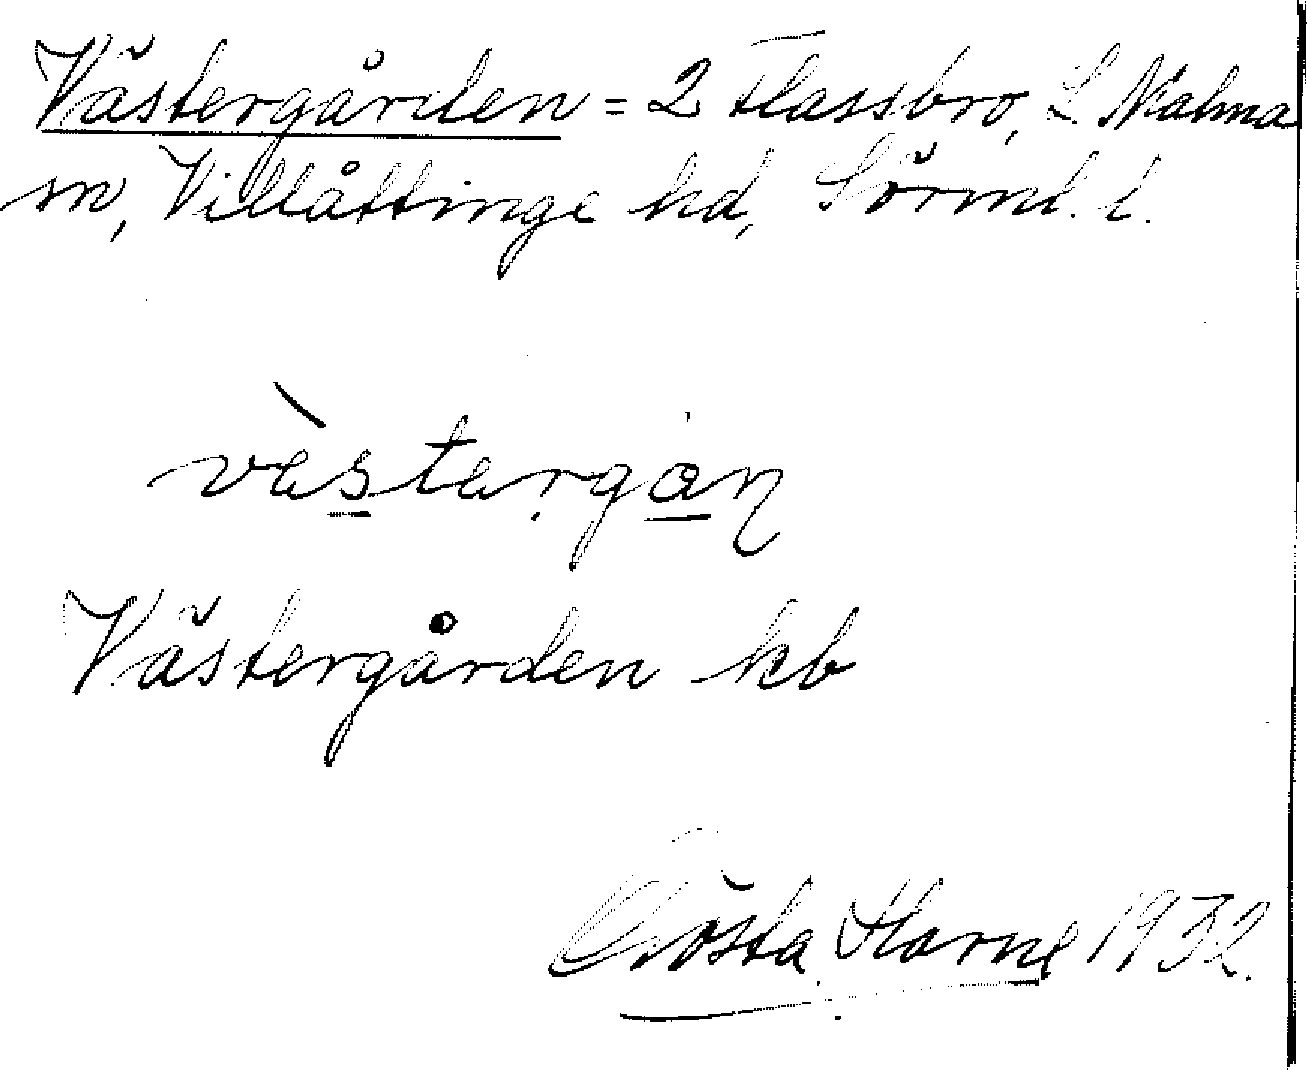 Västergården = 2 Hassbro, L Malma
sn, Villåttinge hd, Sörml. l.
västergån
Västergården kb
Gösta Harne 1932.